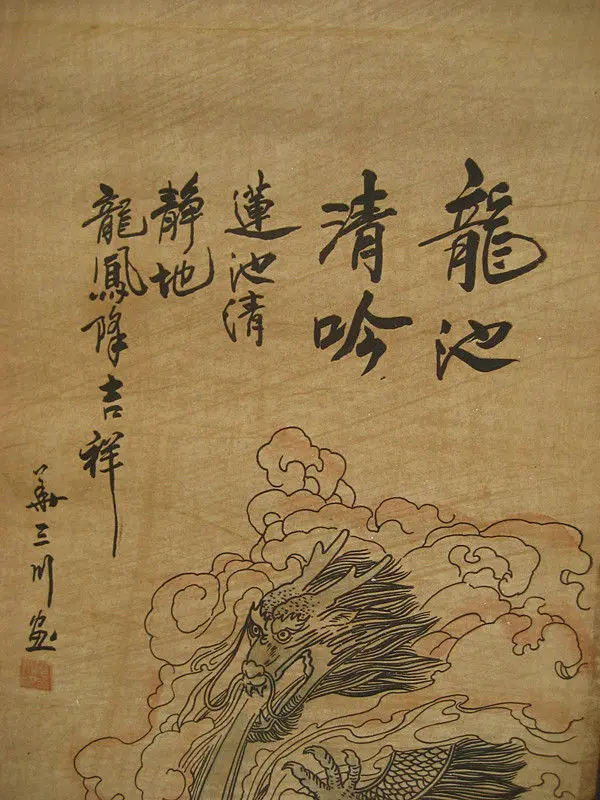 龍池
清吟
蓮池清
靜地
龍鳳降吉祥
華三川畫